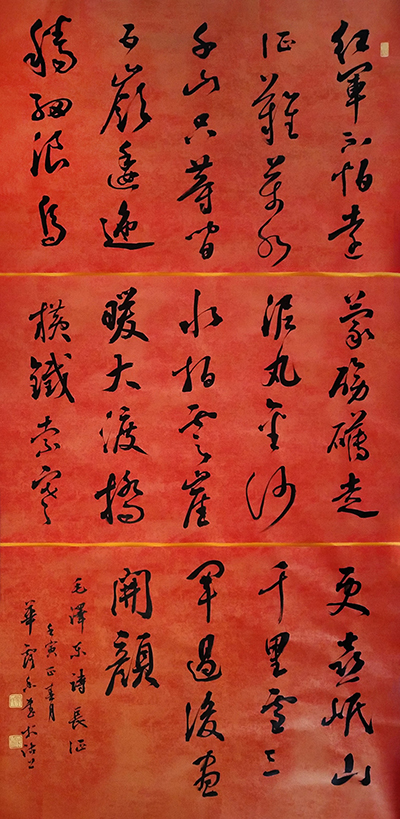 红軍不怕遠
征難萬水
千山只等閒
五嶺逶迤
騰細浪烏
蒙磅礴走
泥丸金沙
水拍雲崖
暖大渡橋
橫鐵索寒
更喜岷山
千里雪三
軍過後盡
開顏
毛澤东詩長征
壬寅正春月